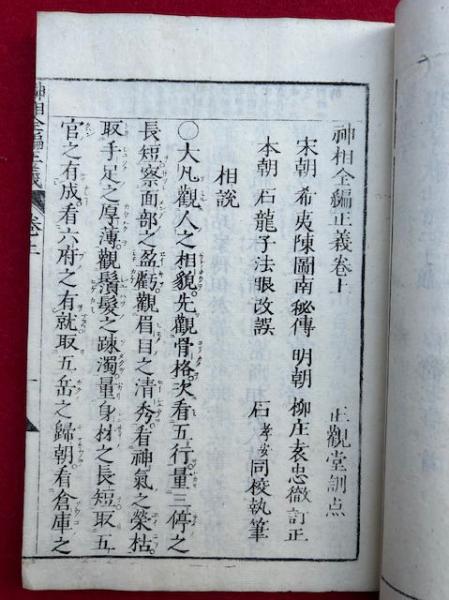 神相全編正義卷上　正觀堂訓点
宋朝　希夷陳圖南秘傳　明朝　柳庄袁忠徹訂正
本朝　石龍子法眼改誤　石孝安同校執筆
相説
〇大凡觀人之相貌先觀骨格次看五行量三停之
長短察面部之盈虧觀眉目之清秀看神氣之榮枯
取手足之厚薄觀鬚髮之疎濁量身材之長短取五
官之有成看六府之有就取五岳之歸朝看倉庫之
神相全編正義　卷上　一